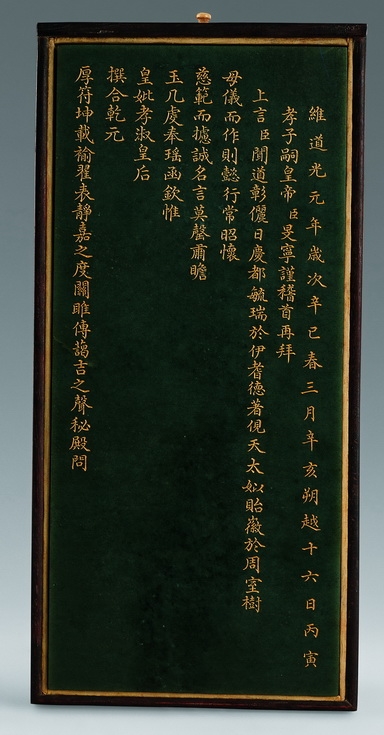 維道光元年歲次辛巳春三月辛亥朔越十六日丙寅
孝子嗣皇帝臣旻寧謹稽首再拜
上言臣聞道彰儷日慶都毓瑞於伊耆德著俔天太姒貽徽於周室樹
母儀而作則懿行常昭懷
慈範而攄誠名言莫罄肅瞻
玉几虔奉瑶函欽惟
皇妣孝淑皇后
撰合乾元
厚符坤載褕翟表靜嘉之度關雎傳藹吉之聲秘殿問